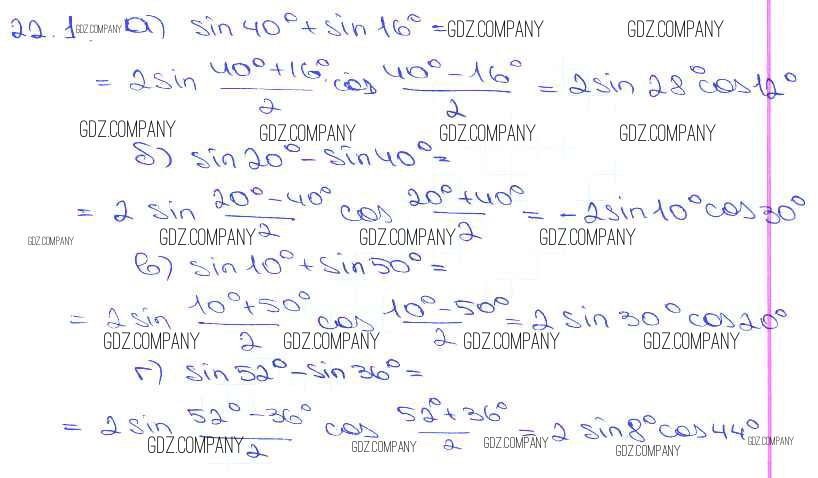 22.1 GDZ.COMPANY а) sin 40° + sin 16° = GDZ.COMPANY GDZ.COMPANY
= 2 sin (40° + 16°)/2 · cos (40° - 16°)/2 = 2 sin 28° cos 12°
GDZ.COMPANY GDZ.COMPANY GDZ.COMPANY GDZ.COMPANY
б) sin 20° - sin 40° =
= 2 sin (20° - 40°)/2 cos (20° + 40°)/2 = -2 sin 10° cos 30°
GDZ.COMPANY GDZ.COMPANY GDZ.COMPANY GDZ.COMPANY
в) sin 10° + sin 50° =
= 2 sin (10° + 50°)/2 cos (10° - 50°)/2 = 2 sin 30° cos 20°
GDZ.COMPANY GDZ.COMPANY GDZ.COMPANY GDZ.COMPANY
г) sin 52° - sin 36° =
= 2 sin (52° - 36°)/2 cos (52° + 36°)/2 = 2 sin 8° cos 44°
GDZ.COMPANY GDZ.COMPANY GDZ.COMPANY GDZ.COMPANY GDZ.COMPANY